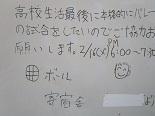 高校生活最後に本格的にバレー
の試合をしたいのでご協力お
願いします。2/16(火) 6:00～7:30
ボール
寄宿舎